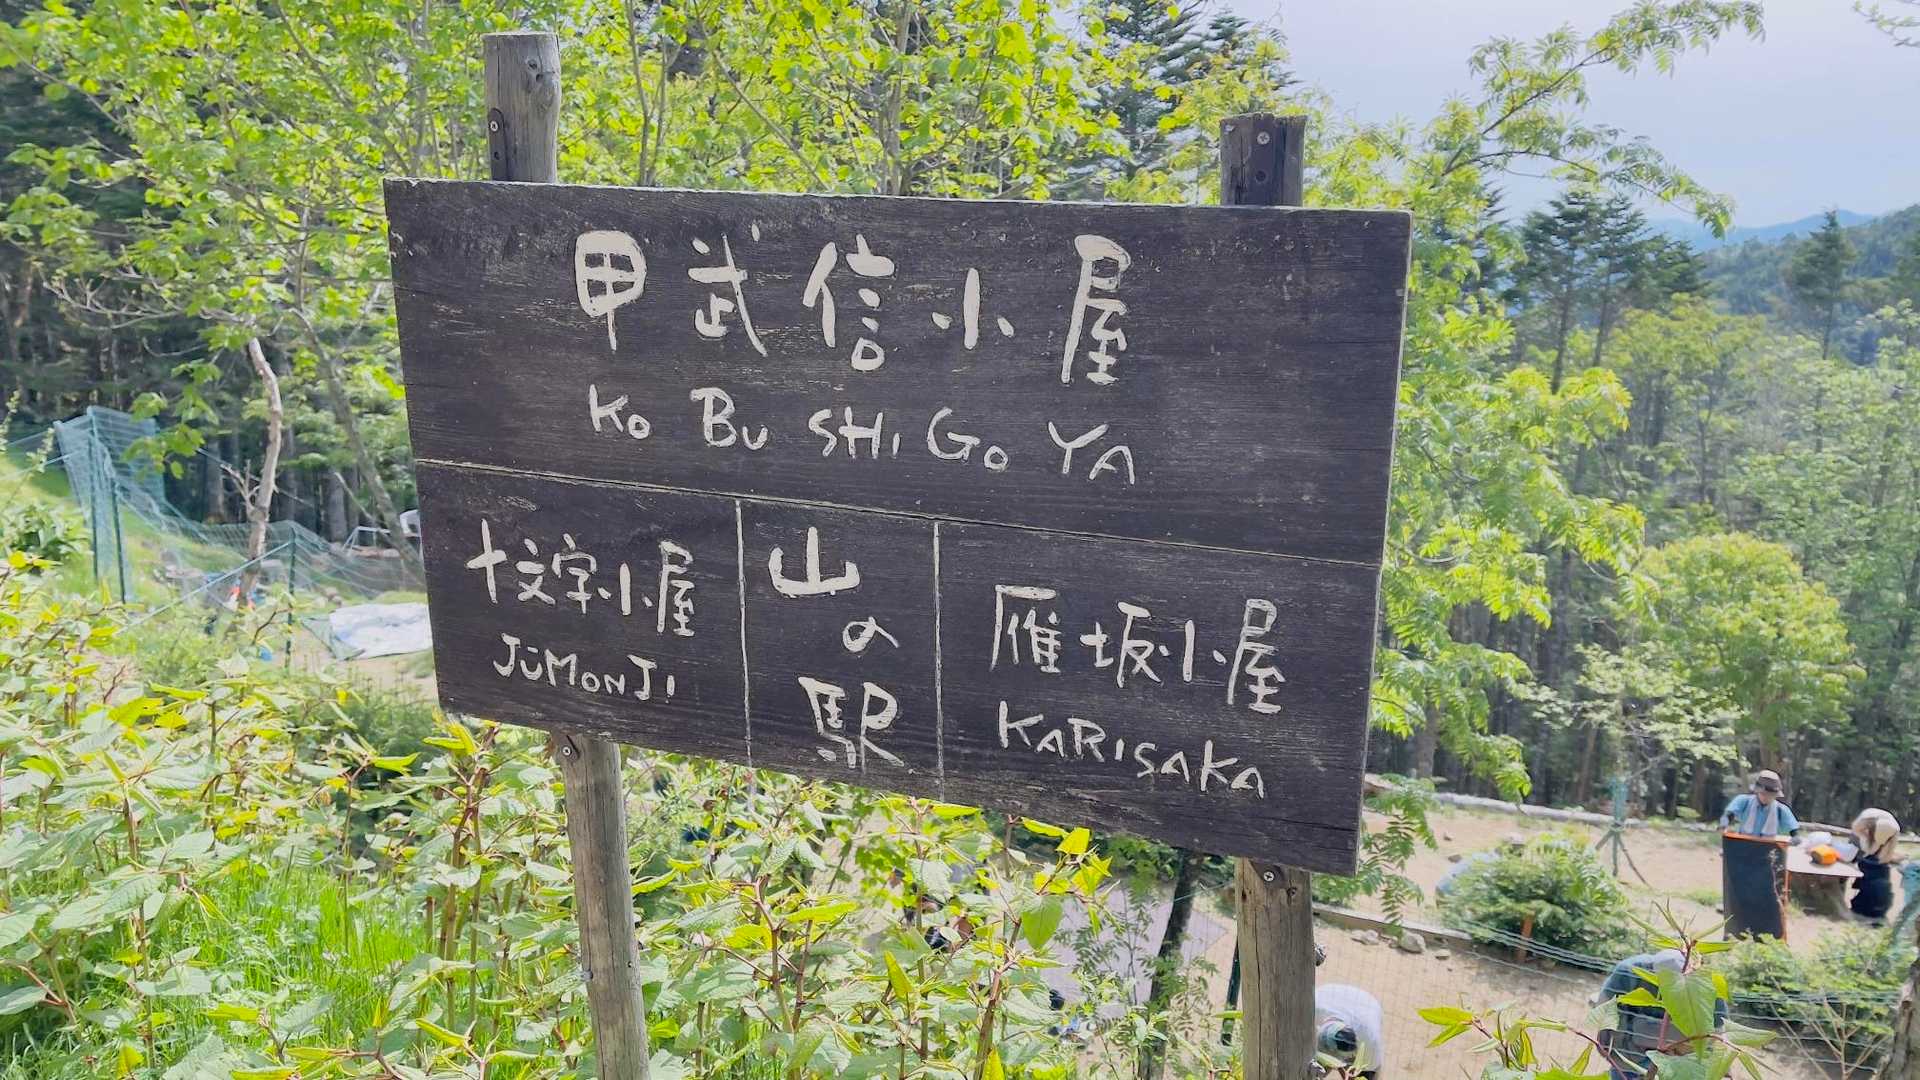 甲武信小屋
Ko Bu SHi Go YA
十文字小屋
JūMonJi
山の駅
雁坂小屋
KARiSAKA